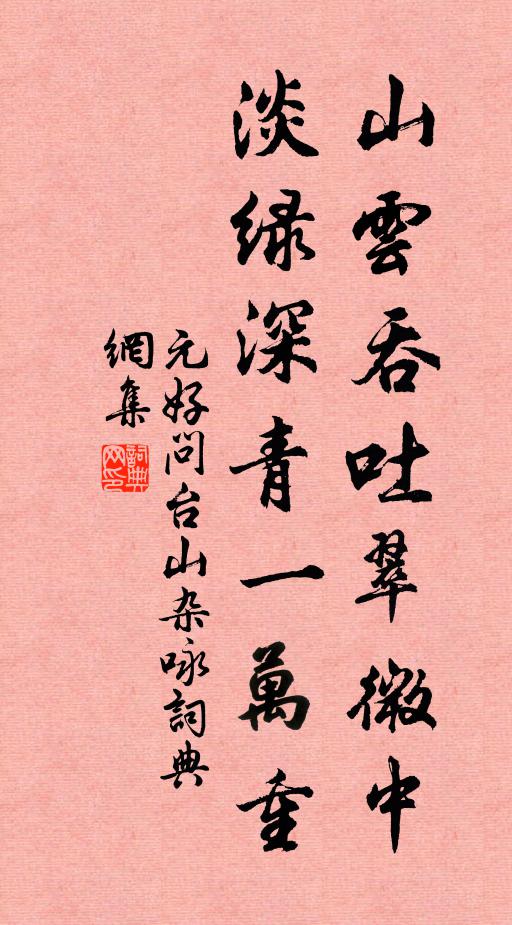 山雲吞吐翠微中
淡緑深青一萬重
元好问台山杂咏詞典
網集
詞典
网印